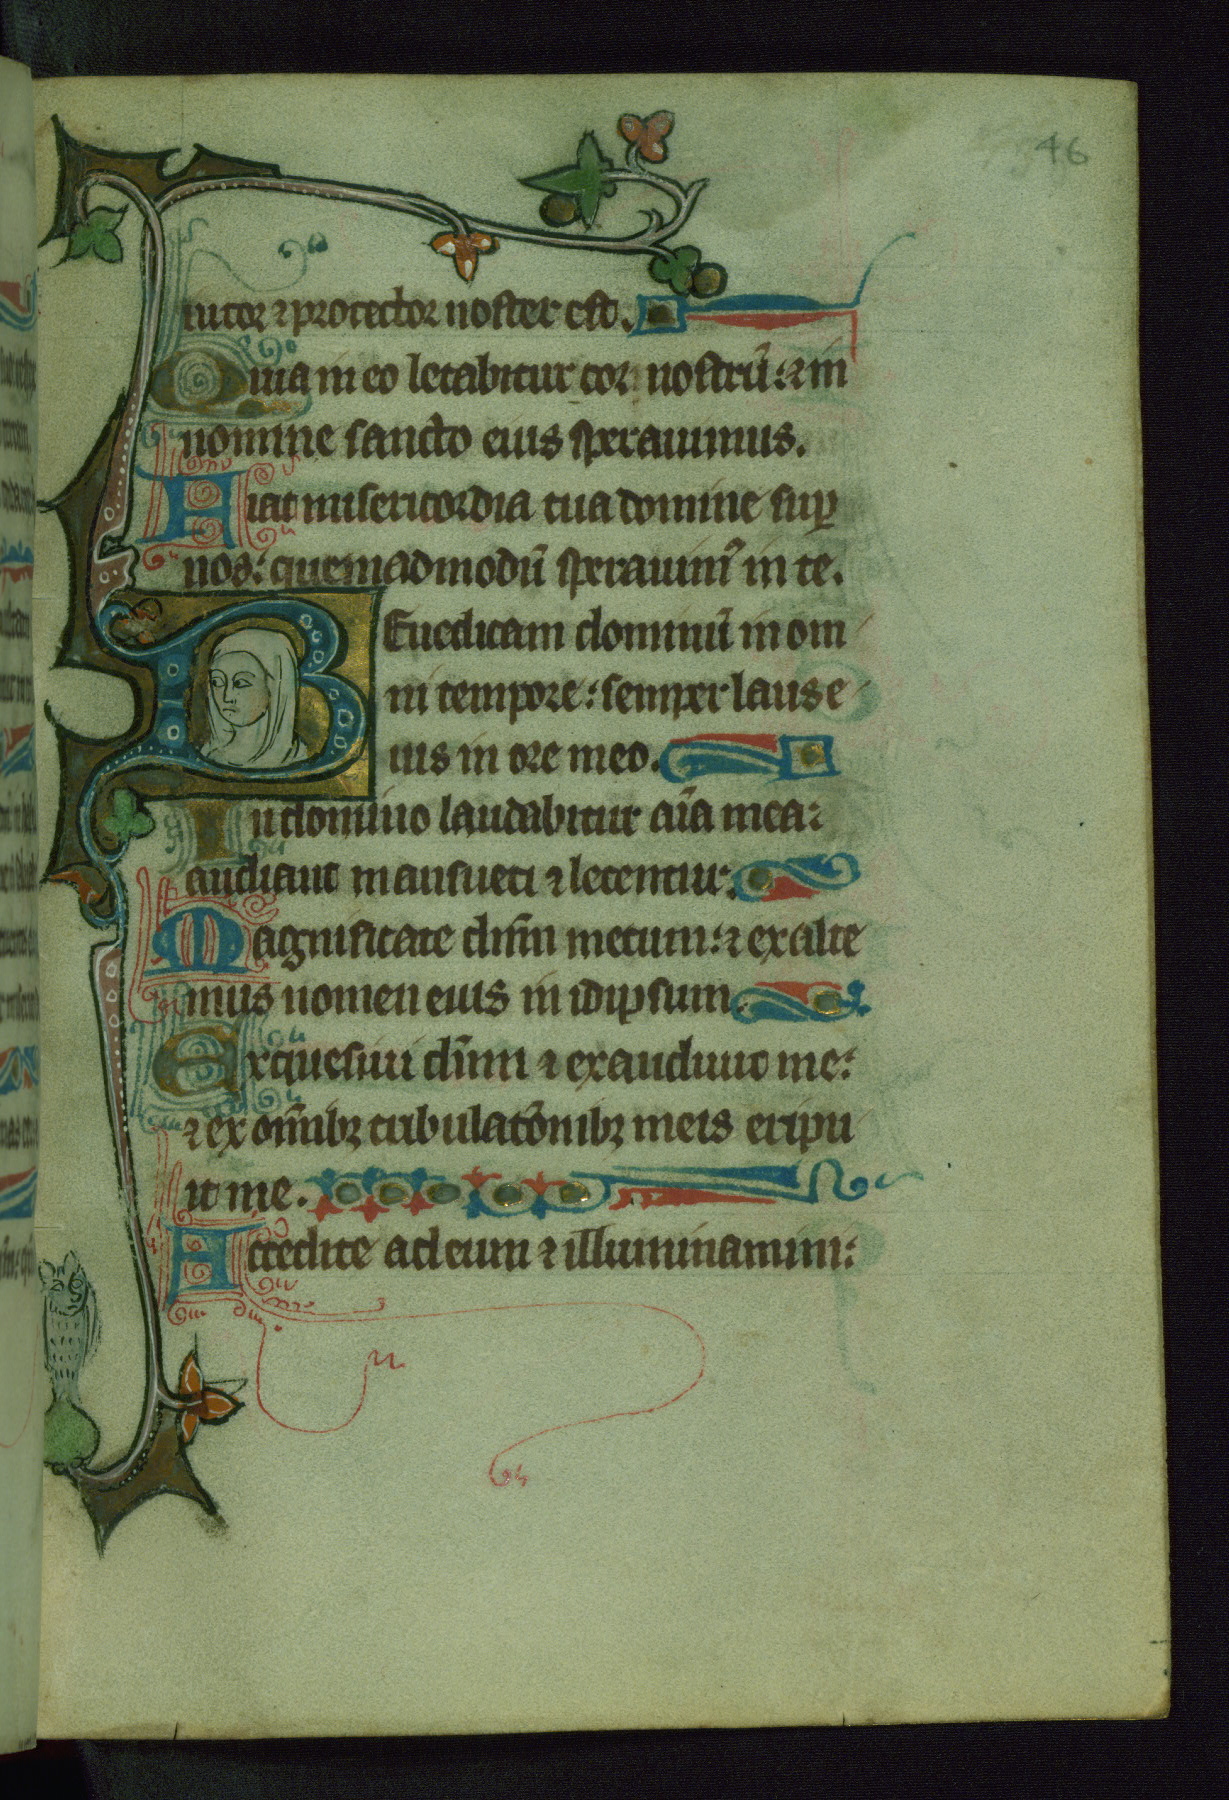 46
iutor ⁊ protector noster est.
Quia in eo letabitur cor nostrũ: ⁊ in
nomine sancto eius sperauimus.
Fiat misericordia tua domine sup
nos: quemadmodũ sperauimꝰ in te.
Benedicam dominũ in om
ni tempore: semper laus e
ius in ore meo.
In domino laudabitur aĩa mea:
audiant mansueti ⁊ letentur.
Magnificate dñm mecum: ⁊ exalte
mus nomen eius in idipsum.
Exquesiui dñm ⁊ exaudiuit me:
⁊ ex omĩbꝫ tribulatõnibꝫ meis eripu
it me.
Accedite ad eum ⁊ illuminamini: